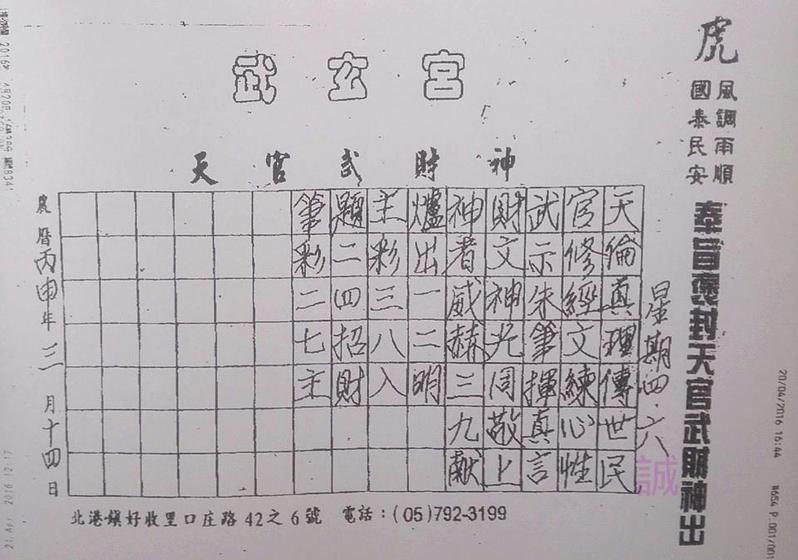 武玄宮
天官武財神
虎
風調雨順
國泰民安
奉旨褒封天官武財神出
星期四.六
天倫真理傳世民
官修經文練心性
武示朱筆揮真言
財文神光同敬上
神者威赫三九献
爐出一二明
主彩三八入
題二四招財
筆彩二七主
農曆丙申年三月十四日
誠
北港鎮好收里口庄路42之6號 電話：(05)792-3199
20/04/2016 16:44 #654 P.001/001
21.Apr 2016 12:17